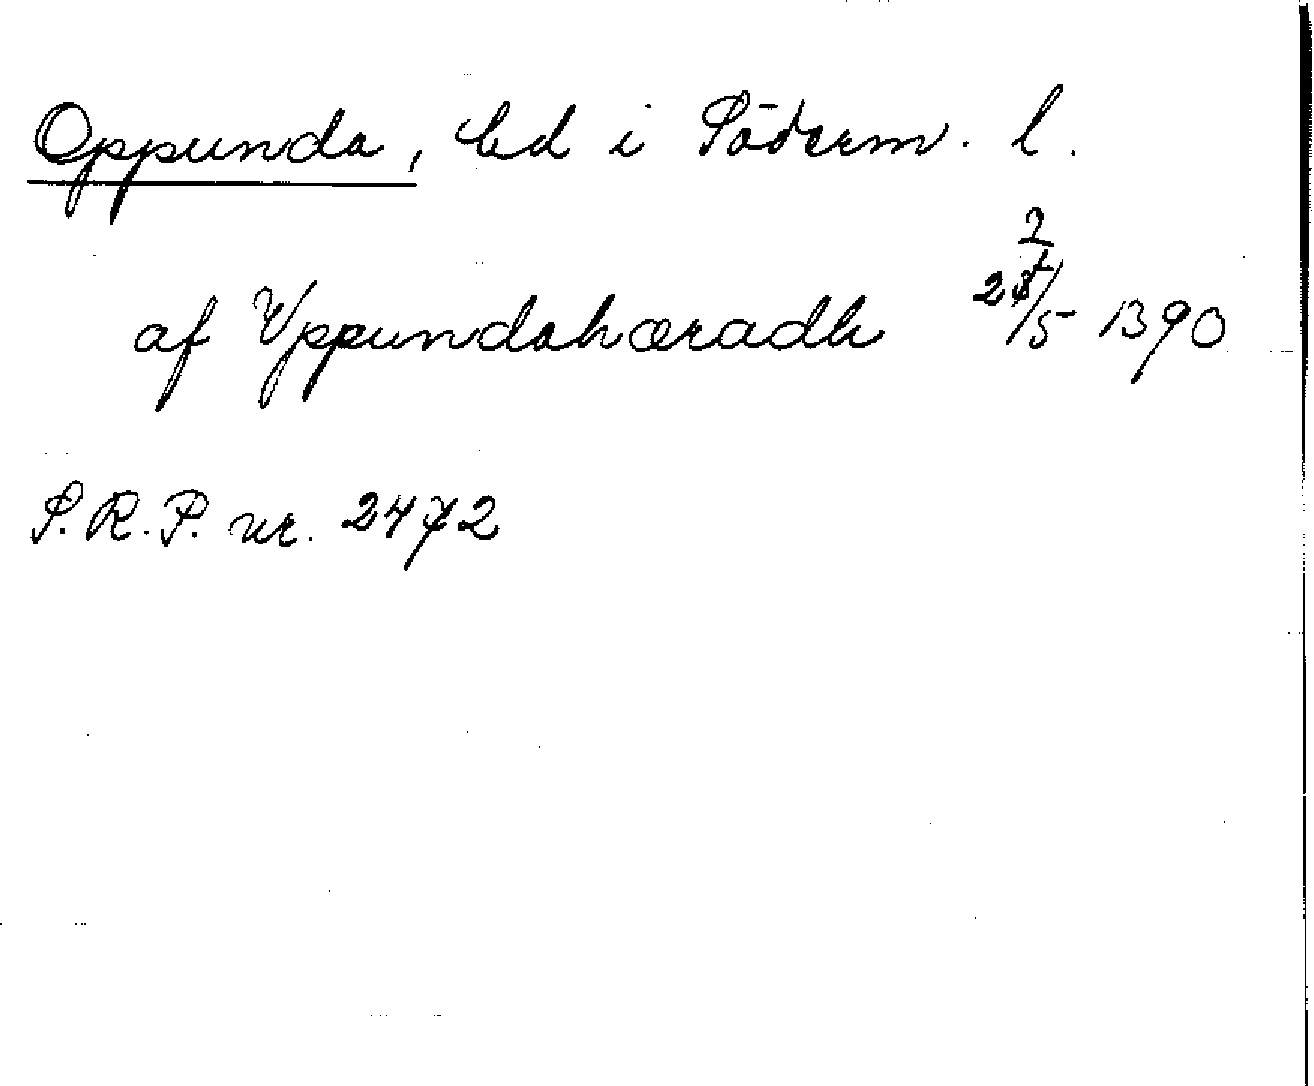 Oppunda, hd i Söderm. l.
af Vppundahæradh 27/5 1390
S.R.P. nr. 2472